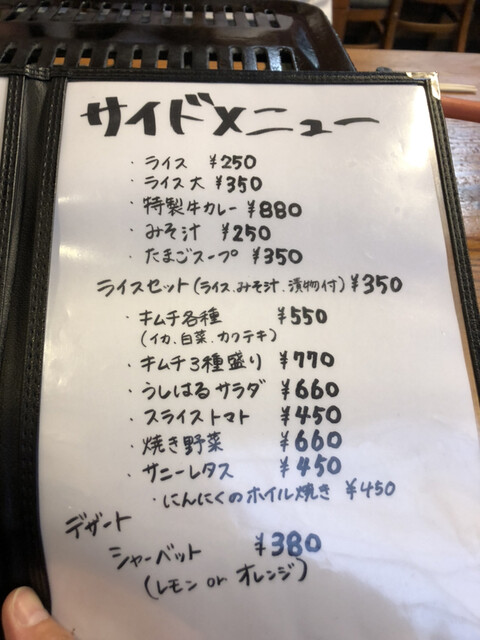 サイドメニュー
・ライス ¥250
・ライス大 ¥350
・特製牛カレー ¥880
・みそ汁 ¥250
・たまごスープ ¥350
ライスセット(ライス、みそ汁、漬物付) ¥350
・キムチ各種 ¥550
(イカ、白菜、カクテキ)
・キムチ3種盛り ¥770
・うしはるサラダ ¥660
・スライストマト ¥450
・焼き野菜 ¥660
・サニーレタス ¥450
・にんにくのホイル焼き ¥450
デザート
シャーベット ¥380
(レモン or オレンジ)